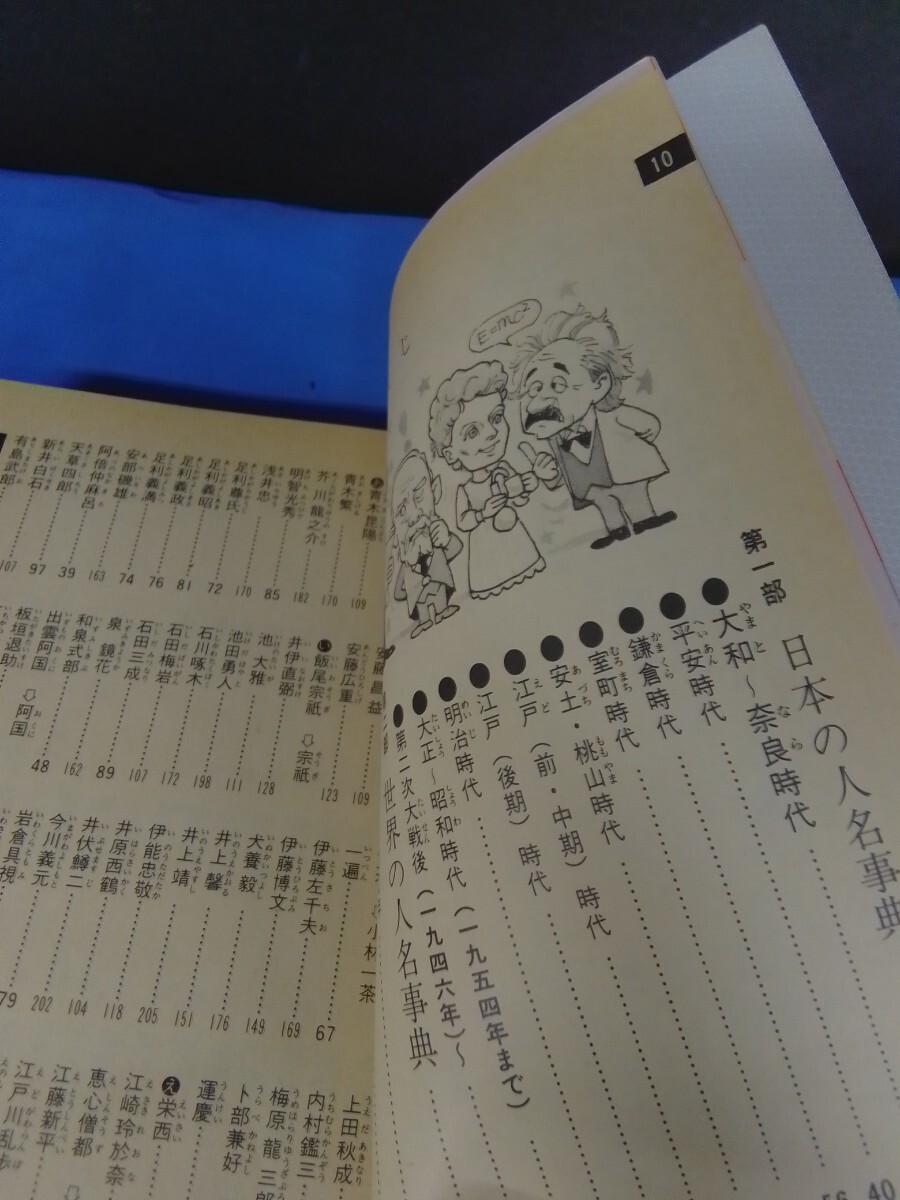 10
E=mc²
じ
第一部 日本の人名事典
●大和～奈良時代
●平安時代
●鎌倉時代
●室町時代
●安土・桃山時代
●江戸（前・中期）時代
●江戸（後期）時代
●明治時代
●大正～昭和時代（一九五四年まで）
●第二次大戦後（一九四六年）～
世界の人名事典
40
あ 青木昆陽 109
青木繁 170
芥川龍之介 182
明智光秀 85
浅井忠 170
足利尊氏 72
足利義昭 81
足利義政 76
足利義満 74
安部磯雄 163
阿倍仲麻呂 39
天草四郎 97
新井白石 107
有島武郎
安藤昌益 109
安藤広重 123
い 飯尾宗祇 ⇨ 宗祇
井伊直弼 128
池大雅 111
池田勇人 198
石川啄木 172
石田梅岩 107
石田三成 89
泉鏡花 162
和泉式部 48
出雲阿国 ⇨ 阿国
板垣退助
一遍 67
⇨ 小林一茶
伊藤左千夫 169
伊藤博文 149
犬養毅 176
井上馨 151
井上靖 205
伊能忠敬 118
井原西鶴 104
井伏鱒二 202
今川義元 79
岩倉具視
上田秋成
内村鑑三
梅原龍三郎
卜部兼好
運慶
え 栄西
江崎玲於奈
恵心僧都
江藤新平
江戸川乱歩